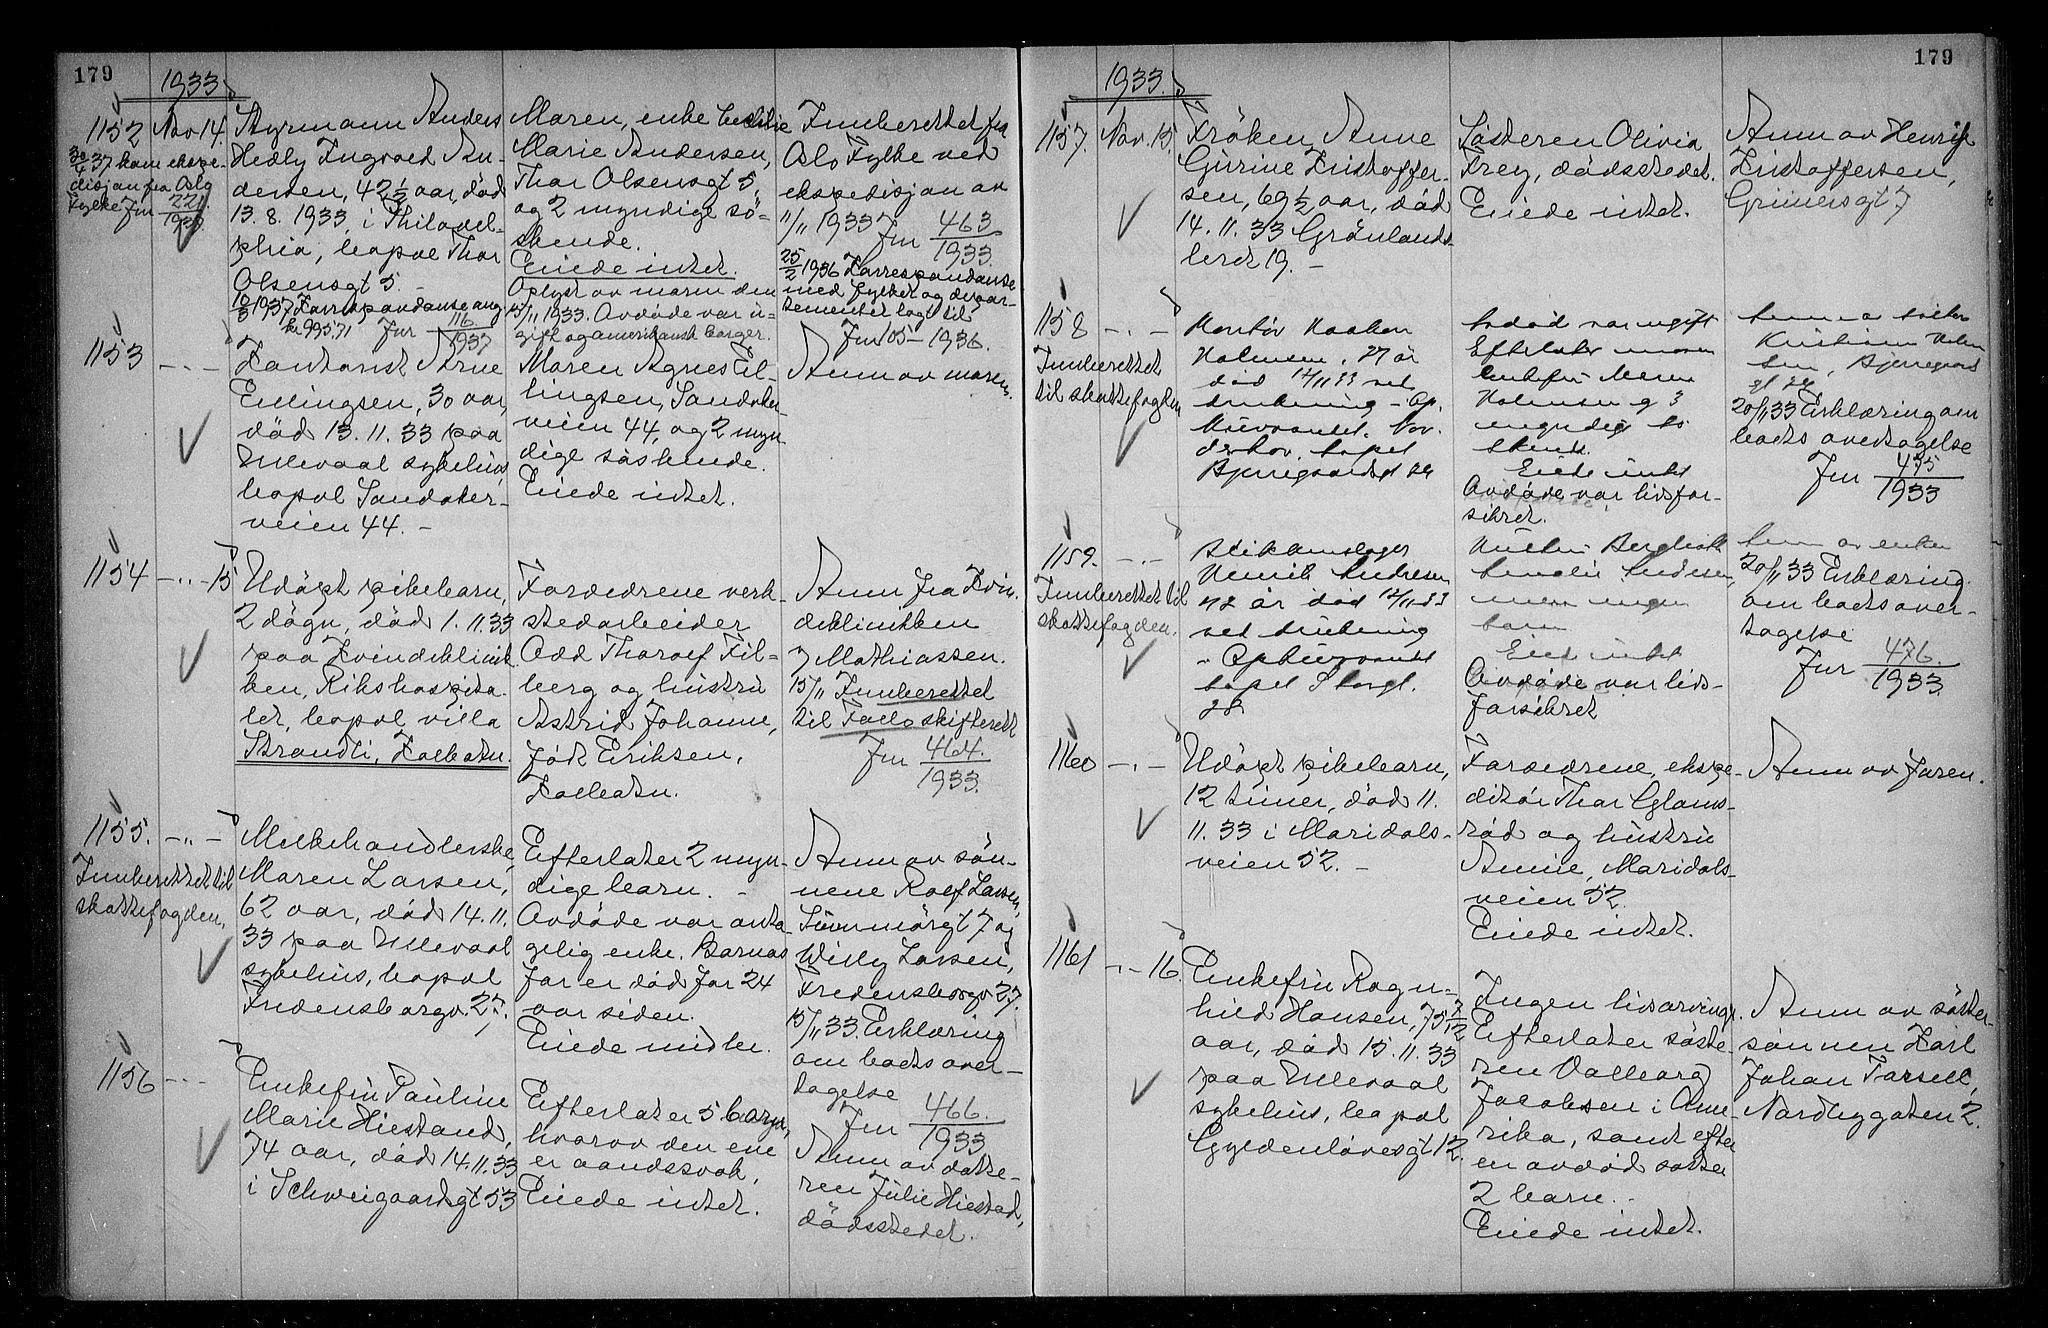 179
1933
1152
Nov 14.
30/4 37 kom ekspe-
disjon fra Oslo
Fylke Jnr 221/1933
Styrmann Anders
Hedly Ingvald An-
dersen, 42 1/2 aar, död
13. 8. 1933 i Philadel-
phia, bopel Thor
Olsensgt 5. -
10/3 1937 Korrespondanse ang
kr 995.71 Jnr 116/1937
Moren, enke
Marie Andersen,
Thor Olsensgt 5,
og 2 myndige sö-
skende.
Eiede intet.
Oplyst av moren den
15/11 1933. Avdöde var u-
gift og amerikansk borger.
Innberettet fra
Oslo Fylke ved
ekspedisjon av
11/11 1933 Jnr 463/1933.
25/2 1936 Korrespondanse
med fylket og depar-
tementet lagt til
Jnr 105 - 1936.
1153
- „ -
Kontorist Arne
Ellingsen, 30 aar,
död 13. 11. 33 paa
Ullevaal sykehus,
bopel Sandaker-
veien 44. -
Moren Agnes El-
lingsen, Sandaker-
veien 44, og 2 myn-
dige söskende.
Eiede intet.
Anm av moren.
1154
- „ - 15
Udöpt pikebarn,
2 dögn, död 1. 11. 33
paa Kvindeklinik-
ken, Rikshospita-
let, bopel villa
Strandli, Kolbotn.
Forældrene verk-
stedarbeider
Odd Thorolf Fil-
berg og hustru
Astrid Johanne,
född Eriksen,
Kolbotn.
Anm fra Kvin-
deklinikken
v Mathiassen.
15/11 Innberettet
til Follo skifterett
Jnr 464/1933.
1155.
- „ -
Innberettet til
skattefogden.
Melkehandlerske
Maren Larsen,
62 aar, död 14. 11.
33 paa Ullevaal
sykehus, bopel
Fredensborgv. 27.
Efterlater 2 myn-
dige barn. -
Avdöde var anta-
gelig enke. Barnas
far er död for 24
aar siden.
Eiede midler.
Anm av sön-
nene Rolf Larsen,
Sunnmörgt 7 og
Willy Larsen,
Fredensborgv 27.
15/11 33. Erklæring
om boets over-
tagelse
Jnr 466/1933
1156
- „ -
Enkefru Pauline
Marie Hiestand,
74 aar, död 14. 11. 33
i Schweigaardsgt 53
Efterlater 5 barn,
hvorav den ene
er aandssvak,
Eiede intet.
Anm av datte-
ren Julie Hiestad,
dödsstedet.
179
1933.
1157.
Nov. 15.
Fröken Anne
Gurine Kristoffer-
sen, 69 1/2 aar, död
14. 11. 33 Grönlands-
leret 19. -
Sösteren Olivia
Frey, dödsstedet.
Eiede intet.
Anm av Henrik
Kristoffersen,
Grünersgt 7
1158
- „ -
Innberettet
til skattefogden
Kontor Haakon
Halmsen, 27 år
död 12/11 33 ved
drukning - Op.
Norderhov, bopel
Bjerregaardsgt 29
Avdöd var ugift
Efterlater moren
enkefru
og 3
myndige sö-
skend.
Eiede intet
Avdöde var livsfor-
sikret.
Anm av
Kristian
Bjerregaards
gt 29
20/11 33 Erklæring om
boets overtagelse
Jnr 475/1933
1159.
- „ -
Innberettet til
skattefogden.
Henrik Andresen
42 år död 12/11 33
ved drukning
bopel Storgt.
28
Hustru
Andresen,
men ingen
barn
Eiede intet
Avdöde var livs-
forsikret
Anm av enken
20/11 33 Erklæring
om boets over-
tagelse
Jnr 476/1933.
1160
- „ -
Udöpt pikebarn,
12 timer, död 11.
11. 33 i Maridals-
veien 52. -
Forældrene, ekspe-
ditör Thor Glams-
röd og hustru
Annie, Maridals-
veien 52.
Eiede intet.
Anm av faren.
1161
- „ - 16.
Enkefru Ragn-
hild Hansen, 75 7/12
aar, död 15. 11. 33
paa Ullevaal
sykehus, bopel
Gyldenlövesgt 12.
Ingen livsarvinger.
Efterlater söste-
ren Valborg
Jacobsen i Ame-
rika, samt efter
en avdöd söster
2 barn. -
Eiede intet.
Anm av söster-
sönnen Karl
Johan Torsell,
Nordbygaten 2.